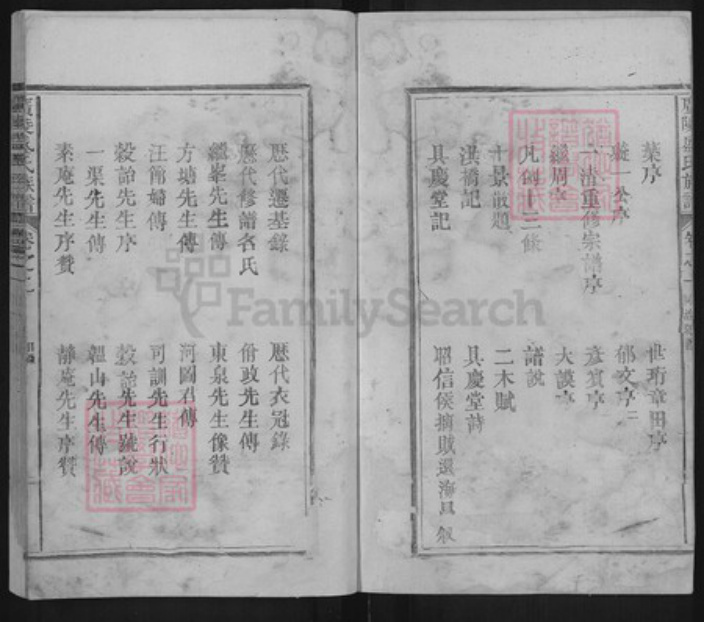 葉序
世珩章田序
凝一公序
郁文序二
一清重修宗譜序
彥賓序
繼周序
大謨序
凡例十三條
譜說
十景敬題
二木賦
洪橋記
具慶堂詩
具慶堂記
昭信侯擒賊還海昌敘
歷代遷基錄
歷代衣冠錄
歷代修譜名氏
脩政先生傳
繼峯先生傳
東泉先生像贊
方塘先生傳
河圖君傳
汪節婦傳
司訓先生行狀
穀詒先生序
穀詒先生號說
一渠先生傳
韞山先生傳
素庵先生序贊
靜庵先生序贊
FamilySearch